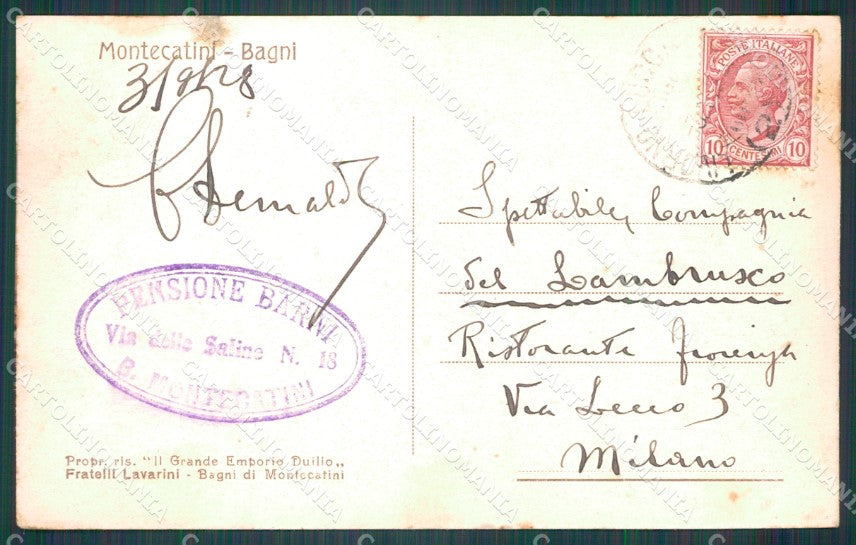 Montecatini - Bagni
3/9/28
POSTE ITALIANE
10 CENTESIMI 10
Spettabile Compagnia
del Lambrusco
Ristorante
Via Lecco 3
Milano
PENSIONE BARNI
Via delle Saline N. 18
B. MONTECATINI
Propr. ris. "Il Grande Emporio Duilio„
Fratelli Lavarini - Bagni di Montecatini
CARTOLINOMANIA